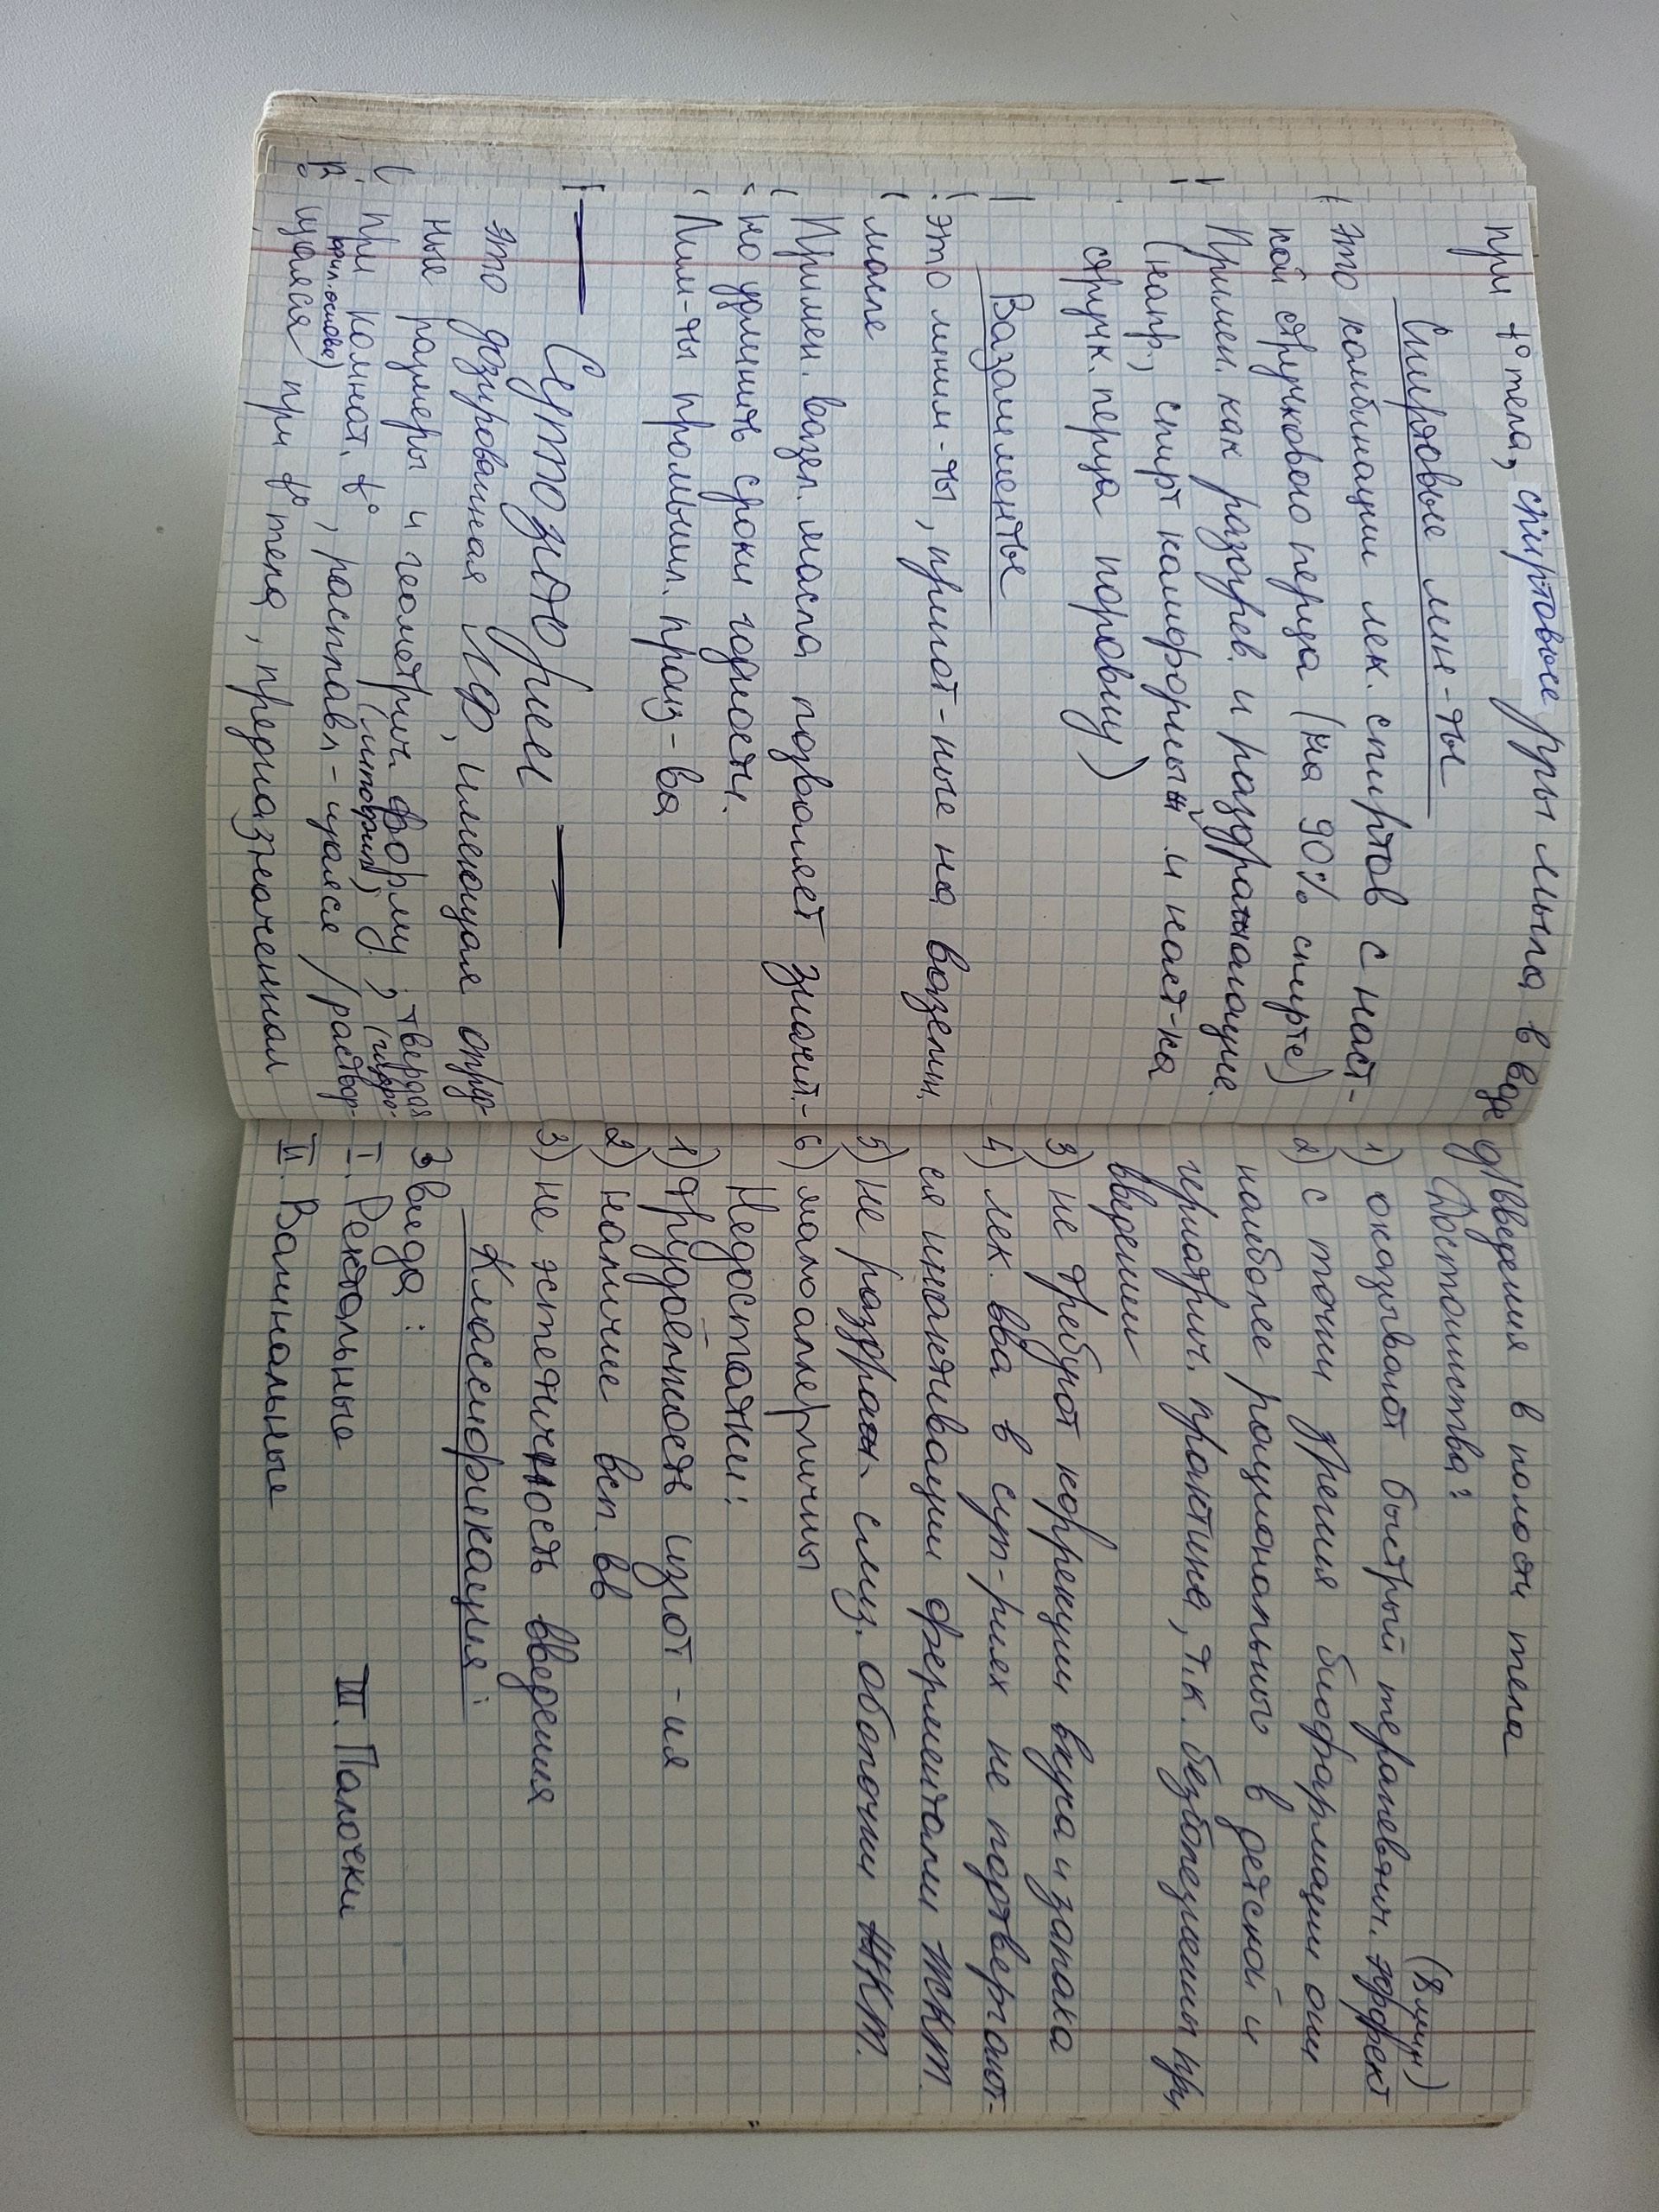 при t° тела, спиртовые р-ры мыла в воде
Спиртовые лин-ты
Это комбинации лек. спиртов с наст-
кой стручкового перца (на 90% спирте)
Примен. как разогрев. и раздражающие.
(напр., спирт камфорный и наст-ка
стручк. перца поровну)
Вазолименты
Это линим-ты, пригот-ные на вазелин.
масле
Примен. вазел. масла позволяет значит-
но удлинить сроки годности.
Лин-ты промышл. произ-ва
Суппозитории
Это дозированная ЛФ, имеющая опр-
ные размеры и геометрич. форму; твердая
при комнат. t°, расплавл-щаяся / раствор-
(липофил.) (гидро-
фил. основа)
щаяся при t° тела, предназначенная
д/введения в полости тела
Достоинства:
(8 мин)
1) оказывают быстрый терапевтич. эффект
2) с точки зрения биофармации они
наиболее рациональны в детской и
гериатрич. практике, т.к. безболезненны при
введении
3) не требуют коррекции вкуса и запаха
4) лек. в-ва в суп-риях не подвергают-
ся инактивации ферментами ЖКТ.
5) не раздраж. слиз. оболочки ЖКТ.
6) малоаллергичны
Недостатки:
1) трудоёмкость изгот-ия
2) наличие всп. вв
3) не эстетичность введения
Классификация:
3 вида:
I. Ректальные
III. Палочки
II. Вагинальные